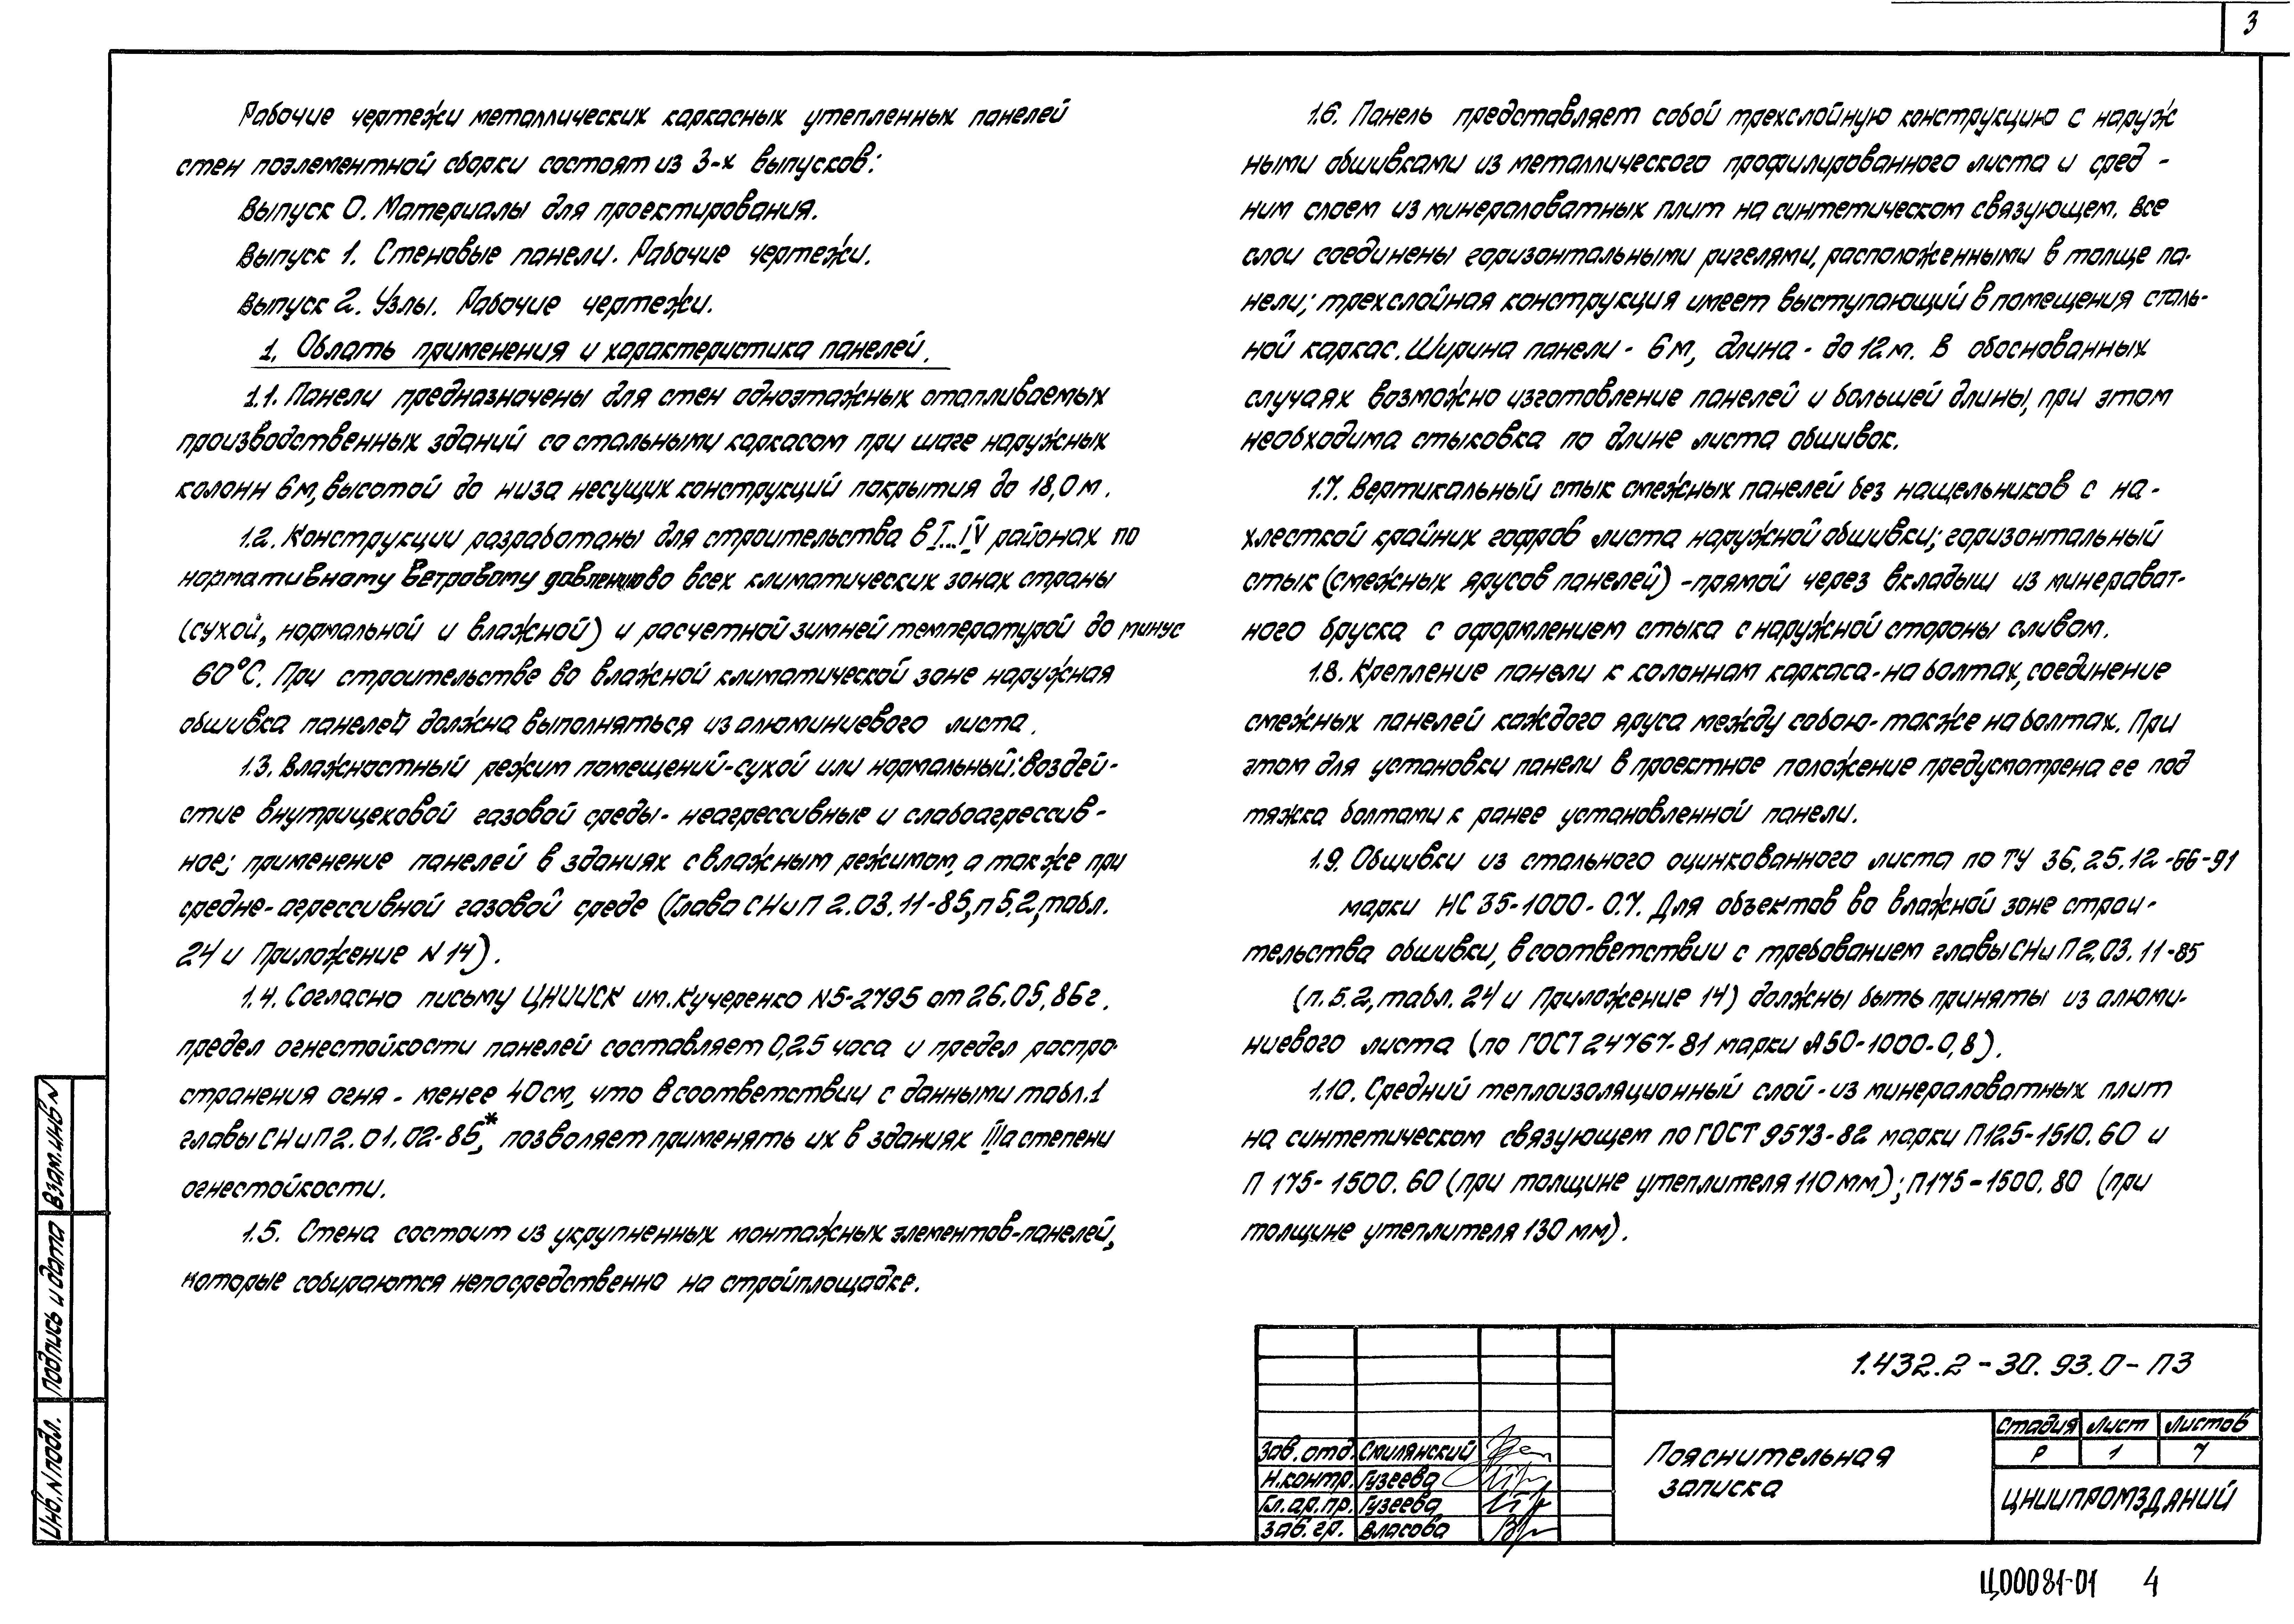 3
Рабочие чертежи металлических каркасных утепленных панелей
стен поэлементной сборки состоят из 3-х выпусков:
Выпуск 0. Материалы для проектирования.
Выпуск 1. Стеновые панели. Рабочие чертежи.
Выпуск 2. Узлы. Рабочие чертежи.
1. Облать применения и характеристика панелей.
1.1. Панели предназначены для стен одноэтажных отапливаемых
производственных зданий со стальными каркасом при шаге наружных
колонн 6м, высотой до низа несущих конструкций покрытия до 18,0м.
1.2. Конструкции разработаны для строительства в I...IV районах по
нормативному ветровому давлению во всех климатических зонах страны
(сухой, нормальной и влажной) и расчетной зимней температурой до минус
60°С. При строительстве во влажной климатической зоне наружная
обшивка панелей должна выполняться из алюминиевого листа.
1.3. Влажностный режим помещений-сухой или нормальный; воздей-
стие внутрицеховой газовой среды- неагрессивные и слабоагрессив-
ное; применение панелей в зданиях с влажным режимом, а также при
средне-агрессивной газовой среде (Глава СНиП 2.03.11-85, п 5.2, табл.
24 и Приложение N 14).
1.4. Согласно письму ЦНИИСК им. Кучеренко N5-2795 от 26.05.86г.
предел огнестойкости панелей составляет 0,25 часа и предел распро-
странения огня - менее 40см, что в соответствии с данными табл.1
главы СНиП 2.01.02-85*, позволяет применять их в зданиях IIIа степени
огнестойкости.
1.5. Стена состоит из укрупненных монтажных элементов-панелей,
которые собираются непосредственно на стройплощадке.
1.6. Панель представляет собой трехслойную конструкцию с наруж
ными обшивками из металлического профилированного листа и сред -
ним слоем из минераловатных плит на синтетическом связующем. Все
слои соединены горизонтальными ригелями, расположенными в толще па-
нели; трехслойная конструкция имеет выступающий в помещения сталь-
ной каркас. Ширина панели - 6м, длина - до 12м. В обоснованных
случаях возможно изготовление панелей и большей длины, при этом
необходима стыковка по длине листа обшивок.
1.7. Вертикальный стык смежных панелей без нащельников с на -
хлесткой крайних гофров листа наружной обшивки; горизонтальный
стык (смежных ярусов панелей) -прямой через вкладыш из минерават-
ного бруска с оформлением стыка с наружной стороны сливом.
1.8. Крепление панели к колоннам каркаса-на болтах, соединение
смежных панелей каждого яруса между собою-также на болтах. При
этом для установки панели в проектное положение предусмотрена ее под
тяжка болтами к ранее установленной панели.
1.9. Обшивки из стального оцинкованного листа по ТУ 36.25.12-66-91
марки НС 35-1000-0.7. Для объектов во влажной зоне строи-
тельства обшивки, в соответствии с требованием главы СНиП 2.03.11-85
(п. 5.2, табл. 24 и Приложение 14) должны быть приняты из алюми-
ниевого листа (по ГОСТ 24767-81 марки А50-1000-0,8).
1.10. Средний теплоизоляционный слой-из минераловатных плит
на синтетическом связующем по ГОСТ 9573-82 марки П125-1510.60 и
П 175-1500.60 (при толщине утеплителя 110мм); П175-1500.80 (при
толщине утеплителя 130мм).
1.432.2-30.93.0-ПЗ
Пояснительная
записка
Стадия Лист Листов
Р 1 7
ЦНИИПРОМЗДАНИЙ
Зав. отд. Смилянский
Н.контр. Гузеева
Гл.ар.пр. Гузеева
Зав.гр. Власова
Взам.инв N
Подпись и дата
Инв.N подл.
Ц00081-01 4